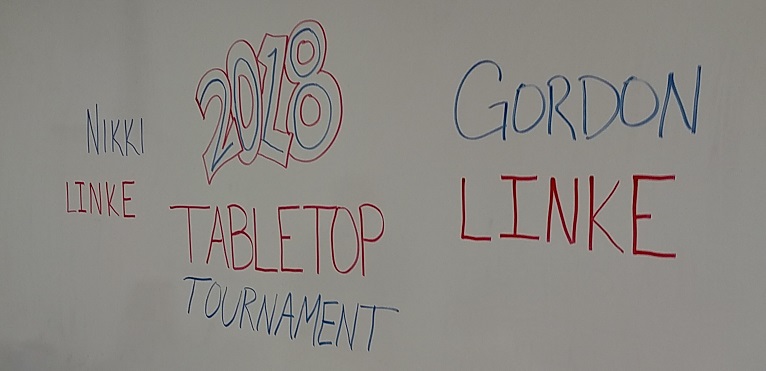 NIKKI
LINKE
2018
TABLETOP
TOURNAMENT
GORDON
LINKE